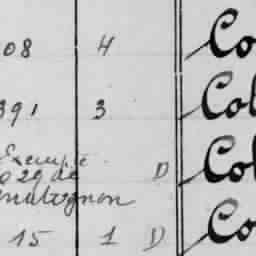 08 4 Co
391 3 Col
Exempté
29 de D Col
15 1 D Co